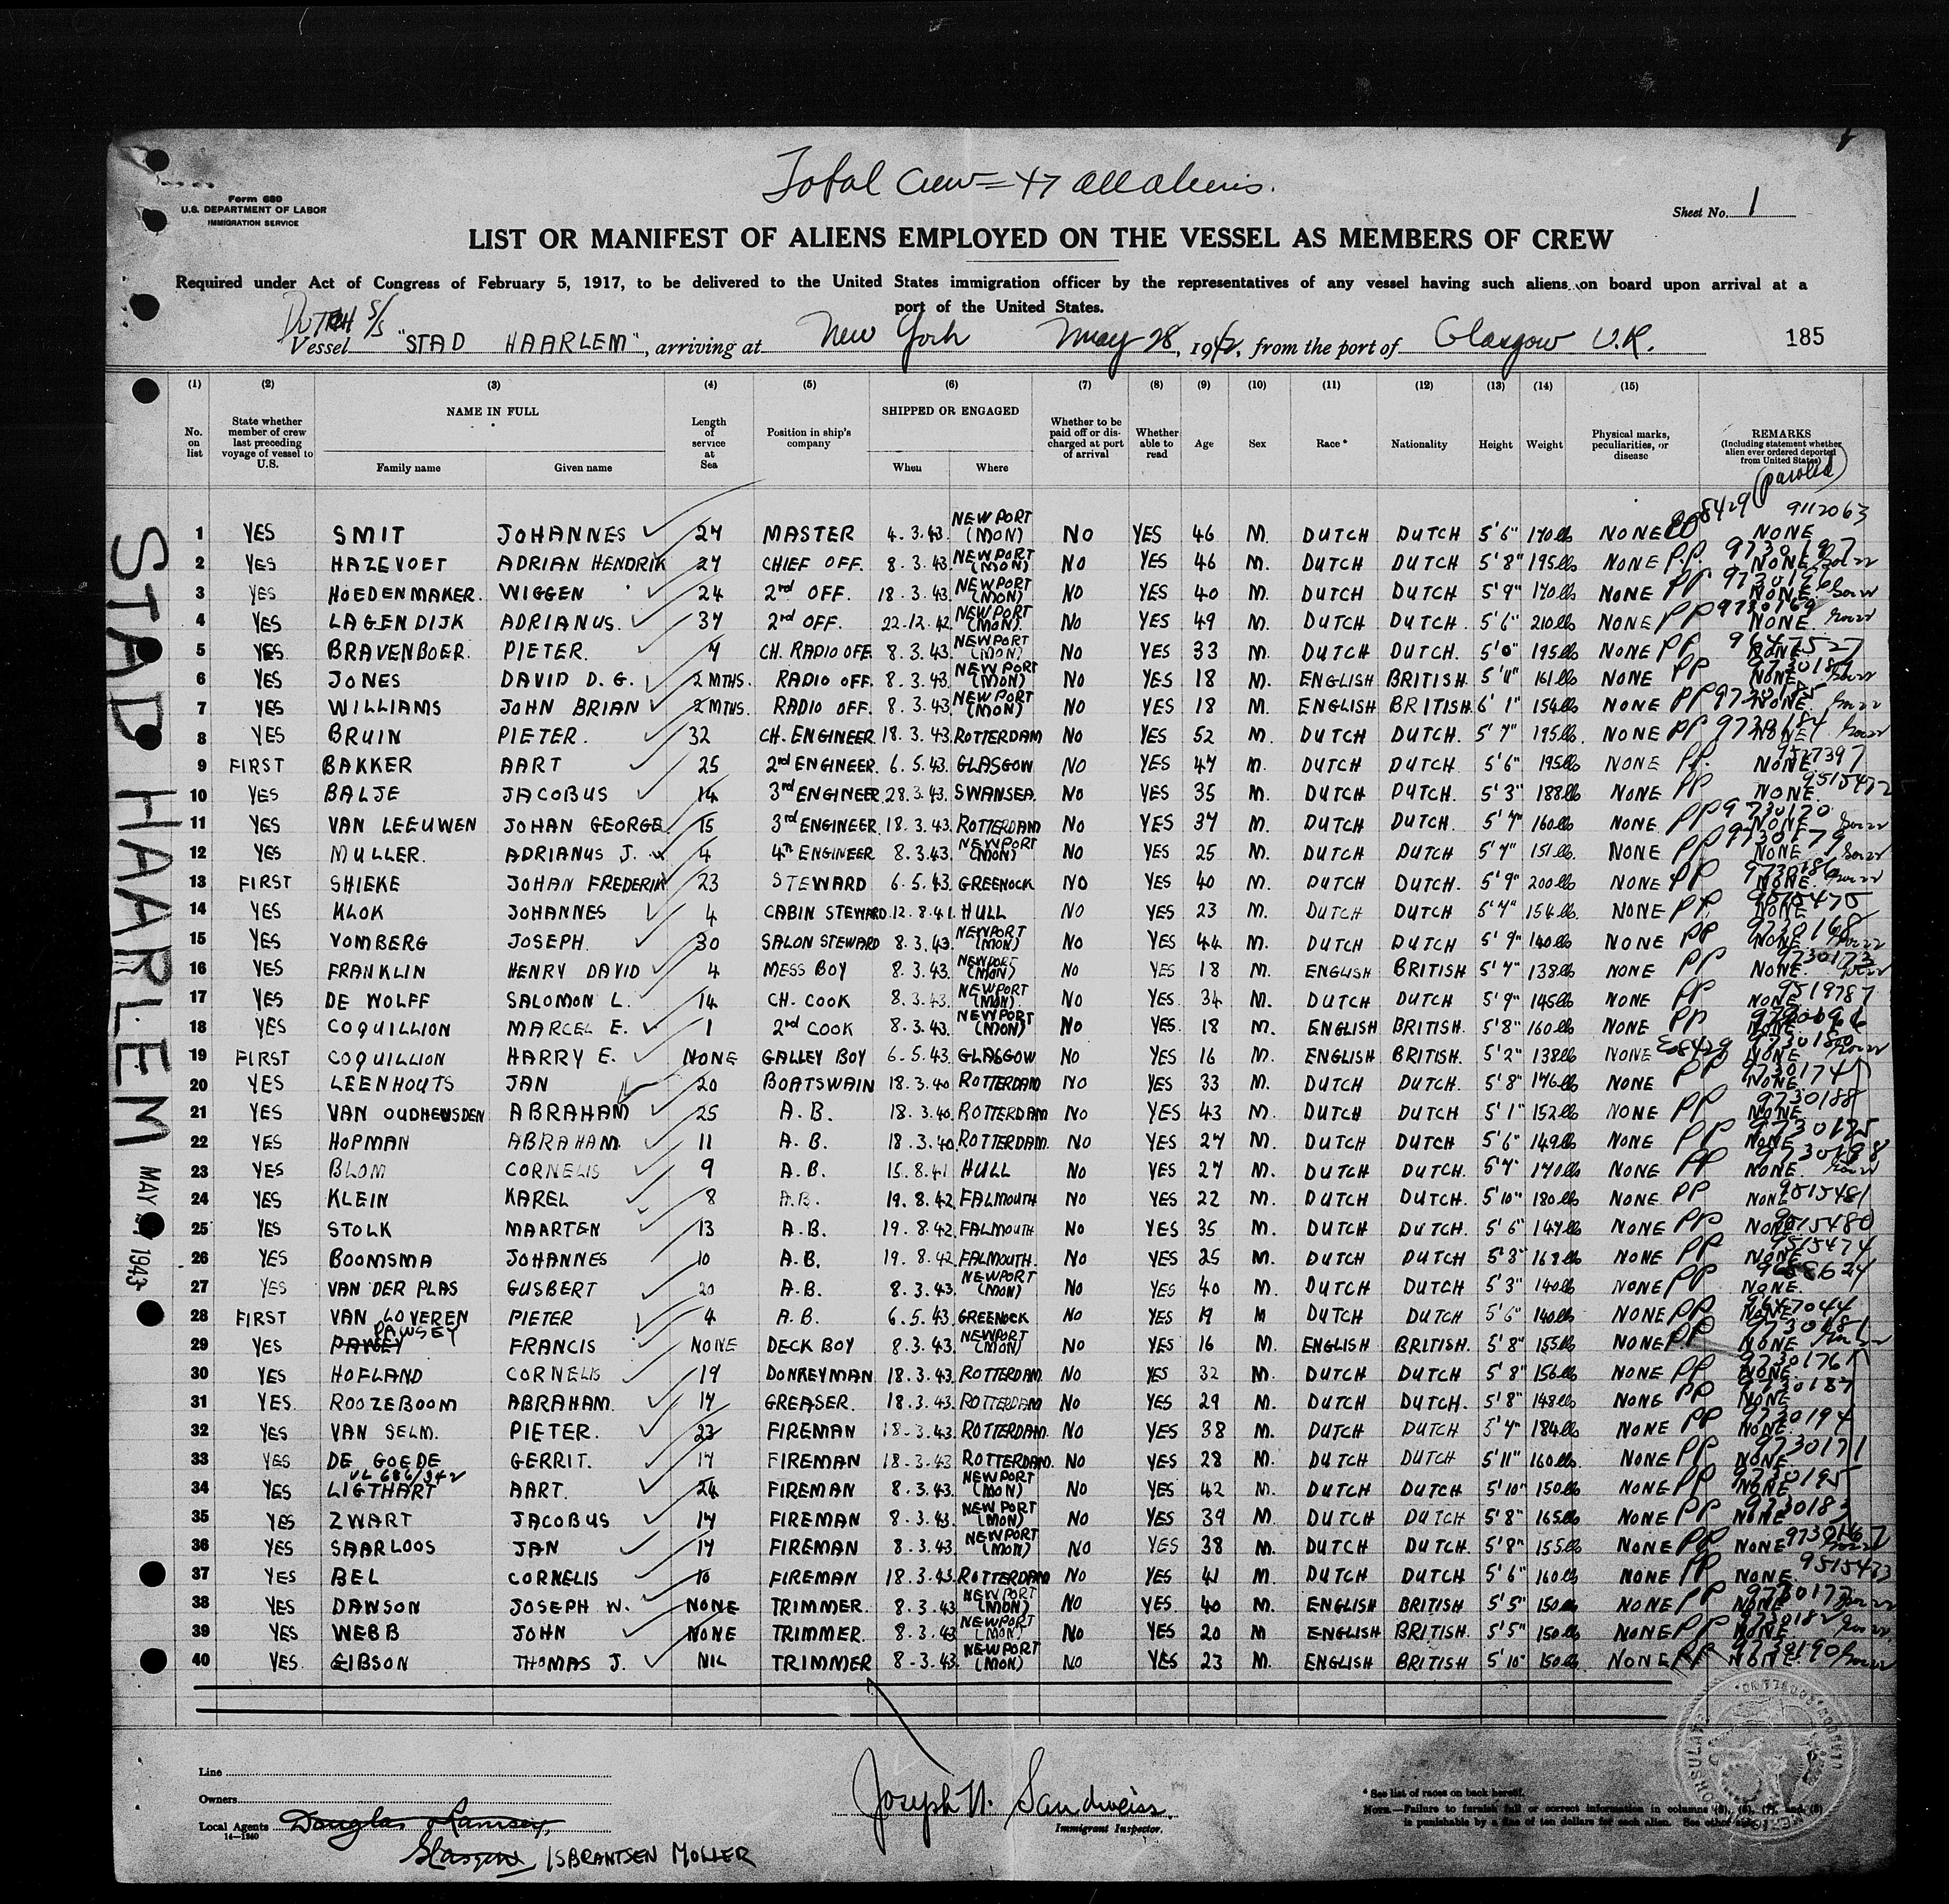 Total Crew = 47 all aliens.
Form 680
U.S. DEPARTMENT OF LABOR
IMMIGRATION SERVICE
Sheet No. 1
LIST OR MANIFEST OF ALIENS EMPLOYED ON THE VESSEL AS MEMBERS OF CREW
Required under Act of Congress of February 5, 1917, to be delivered to the United States immigration officer by the representatives of any vessel having such aliens on board upon arrival at a
port of the United States.
DUTCH S/S
Vessel "STAD HAARLEM", arriving at New York May 28, 194, from the port of Glasgow U.K. 185
(1) (2) (3) (4) (5) (6) (7) (8) (9) (10) (11) (12) (13) (14) (15)
No. on list State whether member of crew last preceding voyage of vessel to U.S. NAME IN FULL Family name Given name Length of service at Sea Position in ship's company SHIPPED OR ENGAGED When Where Whether to be paid off or discharged at port of arrival Whether able to read Age Sex Race * Nationality Height Weight Physical marks, peculiarities, or disease REMARKS (Including statement whether alien ever ordered deported from United States)
(paroled)
1 YES SMIT JOHANNES 27 MASTER 4.3.43 NEWPORT (MON) NO YES 46 M. DUTCH DUTCH 5'6" 170lb NONE 8429 9112063 NONE
2 YES HAZEVOET ADRIAN HENDRIK 27 CHIEF OFF. 8.3.43 NEWPORT (MON) NO YES 46 M. DUTCH DUTCH 5'8" 195lb NONE P.P. NONE
3 YES HOEDENMAKER. WIGGEN 24 2nd OFF. 18.3.43 NEWPORT (MON) NO YES 40 M. DUTCH DUTCH 5'9" 170lb NONE PP NONE
4 YES LAGENDIJK ADRIANUS. 37 2nd OFF. 22.12.42 NEWPORT (MON). NO YES 49 M. DUTCH DUTCH 5'6" 210lb NONE PP 9730169 NONE.
5 YES BRAVENBOER. PIETER. 7 CH. RADIO OFF. 8.3.43 NEWPORT (MON) NO YES 33 M. DUTCH DUTCH. 5'0" 195lb NONE PP 9647527 NONE
6 YES JONES DAVID D. G. 2 MTHS. RADIO OFF. 8.3.43 NEWPORT (MON) NO YES 18 M. ENGLISH BRITISH. 5'11" 161lb NONE PP NONE
7 YES WILLIAMS JOHN BRIAN 2 MTHS. RADIO OFF. 8.3.43 NEWPORT (MON) NO YES 18 M. ENGLISH BRITISH. 6'1" 154lb NONE PP NONE.
8 YES BRUIN PIETER. 32 CH. ENGINEER. 18.3.43 ROTTERDAM NO YES 52 M. DUTCH DUTCH. 5'7" 195lb. NONE PP 9730184 NONE
9 FIRST BAKKER AART 25 2nd ENGINEER. 6.5.43 GLASGOW NO YES 47 M. DUTCH DUTCH 5'6" 195lb NONE PP. NONE
10 YES BALJE JACOBUS 14 3rd ENGINEER 28.3.43 SWANSEA. NO YES 35 M. DUTCH DUTCH. 5'3" 188lb NONE PP NONE
11 YES VAN LEEUWEN JOHAN GEORGE 15 3rd ENGINEER 18.3.43 ROTTERDAM NO YES 37 M. DUTCH DUTCH. 5'7" 160lb NONE. PP 9730170 NONE
12 YES MULLER. ADRIANUS J. 4 4th ENGINEER 8.3.43 NEWPORT (MON) NO YES 25 M. DUTCH DUTCH 5'7" 151lb. NONE PP 9730179 NONE
13 FIRST SHIEKE JOHAN FREDERIK 23 STEWARD 6.5.43 GREENOCK NO YES 40 M. DUTCH DUTCH. 5'9" 200lb NONE PP 9730186 NONE.
14 YES KLOK JOHANNES 4 CABIN STEWARD. 12.8.41 HULL NO YES 23 M. DUTCH DUTCH. 5'7" 154lb. NONE PP. NONE
15 YES VOMBERG JOSEPH. 30 SALON STEWARD 8.3.43 NEWPORT (MON) NO YES 44 M. DUTCH DUTCH 5'9" 140lb NONE PP 9730168 NONE
16 YES FRANKLIN HENRY DAVID 4 MESS BOY 8.3.43 NEWPORT (MON) NO YES 18 M. ENGLISH BRITISH 5'7" 138lb NONE PP 9730173 NONE.
17 YES DE WOLFF SALOMON L. 14 CH. COOK 8.3.43 NEWPORT (MON) NO YES. 34 M. DUTCH DUTCH 5'9" 145lb NONE PP 9519787 NONE
18 YES COQUILLION MARCEL E. 1 2nd COOK 8.3.43 NEWPORT (MON) NO YES. 18 M. ENGLISH BRITISH. 5'8" 160lb NONE PP NONE
19 FIRST COQUILLION HARRY E. NONE GALLEY BOY 6.5.43 GLASGOW NO YES 16 M. ENGLISH BRITISH. 5'2" 138lb NONE 8429 9730180 NONE
20 YES LEENHOUTS JAN 20 BOATSWAIN 18.3.40 ROTTERDAM NO YES 33 M. DUTCH DUTCH. 5'8" 176lb NONE PP 9730174 NONE.
21 YES VAN OUDHEUSDEN ABRAHAM 25 A.B. 18.3.40 ROTTERDAM NO YES 43 M. DUTCH DUTCH. 5'1" 152lb NONE PP 9730188 NONE
22 YES HOPMAN ABRAHAM. 11 A.B. 18.3.40 ROTTERDAM. NO YES 27 M. DUTCH DUTCH 5'6" 149lb NONE PP NONE
23 YES BLOM CORNELIS 9 A.B. 15.8.41 HULL NO YES 27 M. DUTCH DUTCH. 5'7" 170lb NONE PP NONE
24 YES KLEIN KAREL 8 A.B. 19.8.42 FALMOUTH NO YES 22 M. DUTCH DUTCH. 5'10" 180lb NONE. PP 9515481 NONE
25 YES STOLK MAARTEN 13 A.B. 19.8.42 FALMOUTH NO YES 35 M. DUTCH DUTCH. 5'6" 147lb NONE PP 9515480 NONE
26 YES BOOMSMA JOHANNES 10 A.B. 19.8.42 FALMOUTH. NO YES 25 M. DUTCH DUTCH 5'8" 168lb NONE PP 9515474 NONE
27 YES VAN DER PLAS GUSBERT 20 A.B. 8.3.43 NEWPORT (MON) NO YES 40 M. DUTCH DUTCH 5'3" 140lb NONE PP NONE.
28 FIRST VAN LOVEREN PIETER 4 A.B. 6.5.43 GREENOCK NO YES 19 M DUTCH DUTCH 5'6" 140lb NONE PP NONE
PAWSEY
29 YES FRANCIS NONE DECK BOY 8.3.43 NEWPORT (MON) NO YES 16 M. ENGLISH BRITISH. 5'8" 155lb NONE PP NONE
30 YES HOFLAND CORNELIS 19 DONKEYMAN 18.3.43 ROTTERDAM NO YES 32 M. DUTCH DUTCH 5'8" 156lb NONE PP 9730176 NONE.
31 YES. ROOZEBOOM ABRAHAM. 17 GREASER. 18.3.43 ROTTERDAM NO YES 29 M. DUTCH DUTCH. 5'8" 148lb NONE PP 9730187 NONE
32 YES VAN SELM. PIETER. 23 FIREMAN 18.3.43 ROTTERDAM. NO YES 38 M. DUTCH DUTCH 5'7" 184lb NONE PP 9730194 NONE.
33 YES DE GOEDE GERRIT. 17 FIREMAN 18.3.43 ROTTERDAM. NO YES 28 M. DUTCH DUTCH 5'11" 160lb NONE PP 9730171 NONE
34 YES LIGTHART AART. 24 FIREMAN 8.3.43 NEWPORT (MON) NO YES 42 M. DUTCH DUTCH 5'10" 150lb NONE PP 9730195 NONE
35 YES ZWART JACOBUS 17 FIREMAN 8.3.43 NEWPORT (MON) NO YES 39 M DUTCH DUTCH 5'8" 165lb NONE PP 9730183 NONE
36 YES SAARLOOS JAN 17 FIREMAN 8.3.43 NEWPORT (MON) NO YES 38 M. DUTCH DUTCH. 5'8" 155lb NONE PP NONE
37 YES BEL CORNELIS 10 FIREMAN 18.3.43 ROTTERDAM NO YES 41 M. DUTCH DUTCH 5'6" 160lb NONE PP NONE. 9515473
38 YES DAWSON JOSEPH W. NONE TRIMMER. 8.3.43 NEWPORT (MON) NO YES. 40 M. ENGLISH BRITISH 5'5" 150lb NONE PP NONE
39 YES WEBB JOHN NONE TRIMMER. 8.3.43 NEWPORT (MON) NO YES 20 M ENGLISH BRITISH. 5'5" 150lb NONE PP 9730182 NONE.
40 YES. GIBSON THOMAS J. NIL TRIMMER 8.3.43 NEWPORT (MON) NO YES 23 M. ENGLISH BRITISH 5'10" 150lb NONE PP 9730190 NONE.
STAD HAARLEM
MAY 1943
Line
Owners
Local Agents Douglas Ramsey,
14—1240
Glasgow ISBRANTSEN MOLLER
Joseph N. Sandweiss.
Immigrant Inspector.
* See list of races on back hereof.
NOTE.—Failure to furnish full or correct information in columns (3), (5), (7), and (8)
is punishable by a fine of ten dollars for each alien. See other side.